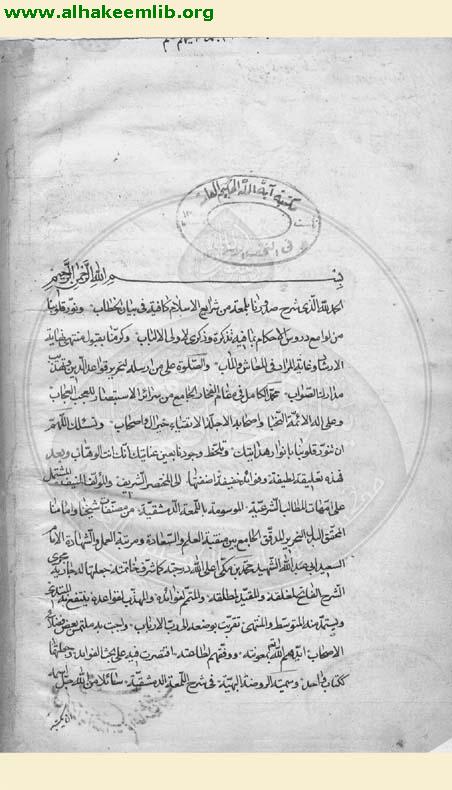 www.alhakeemlib.org
مكتبة آية الله الحكيم العامة
بسم الله الرحمن الرحيم
الحمد لله الذي شرح صدورنا بلمعة من شرايع الاسلام كافية في بيان الخطاب ونور قلوبنا
من لوامع دروس الاحكام بما فيه تذكرة وذكرى لاولى الالباب وكرمنا بقبول منتهى نهاية
الارشاد وغاية المراد في المعاش والمآب والصلوة على من ارسله لتحرير قواعد الدين وتهذيب
مدارك الصواب محمد الكامل في مقام الفخار الجامع من سرائر الاستبصار للعجب العجاب
وعلى اله الائمة النجبا واصحابه الاجلة الاتقياء خير ال واصحاب ونسئلك اللهم
ان تنور قلوبنا بانوار هدايتك وتلحظ وجودنا بعين عنايتك انك انت الوهاب وبعد
فهذه تعليقة لطيفة وفوائد خفيفة اضفتها الى المختصر الشريف والمؤلف المنيف المشتمل
على امهات المطالب الشرعية الموسومة باللمعة الدمشقية من مصنفات شيخنا وامامنا
المحقق البدل النحرير المدقق الجامع بين منقبة العلم والسعادة ومرتبة العمل والشهادة الامام
السعيد ابي عبد الله الشهيد محمد بن مكي اعلى الله درجته كما شرف خاتمته جعلتها له جارية مجرى
الشرح الفاتح لمغلقه والمقيد لمطلقه والمتمم لفوائده والمهذب لقواعده ينتفع به المبتدي
ويستمد منه المتوسط والمنتهي تقربت بوضعه الى رب الارباب واجبت به ملتمس بعض فضلاء
الاصحاب ايدهم الله بمعونته ووفقهم لطاعته اقتصرت فيه على بحث الفوائد وجعلتهما
ككتاب واحد وسميته الروضة البهية في شرح اللمعة الدمشقية سائلا من الله جل اسمه